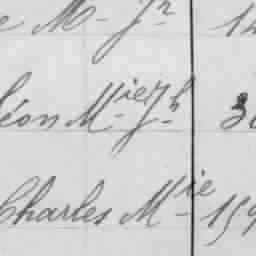 e M- Jn 14
Léon M-ie J-h 3
Charles M-ie 159